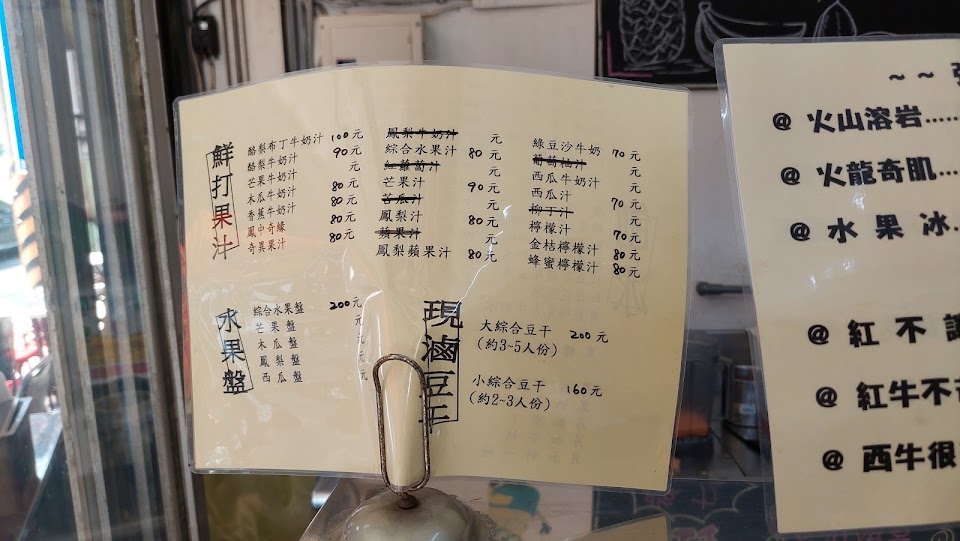 鮮打果汁
酪梨布丁牛奶汁 100元
酪梨牛奶汁 90元
芒果牛奶汁 元
木瓜牛奶汁 80元
香蕉牛奶汁 80元
鳳中奇緣 80元
奇異果汁 80元
鳳梨牛奶汁 元
綜合水果汁 80元
紅蘿蔔汁 元
芒果汁 90元
苦瓜汁 元
鳳梨汁 80元
蘋果汁 元
鳳梨蘋果汁 80元
綠豆沙牛奶 70元
葡萄柚汁 元
西瓜牛奶汁 元
西瓜汁 70元
柳丁汁 元
檸檬汁 70元
金桔檸檬汁 80元
蜂蜜檸檬汁 80元
水果盤
綜合水果盤 200元
芒果盤 元
木瓜盤 元
鳳梨盤 元
西瓜盤 元
現滷豆干
大綜合豆干 200元
(約3~5人份)
小綜合豆干 160元
(約2~3人份)
~ ~
@ 火山溶岩.....
@ 火龍奇肌...
@ 水果冰.
@ 紅不
@ 紅牛不
@ 西牛很